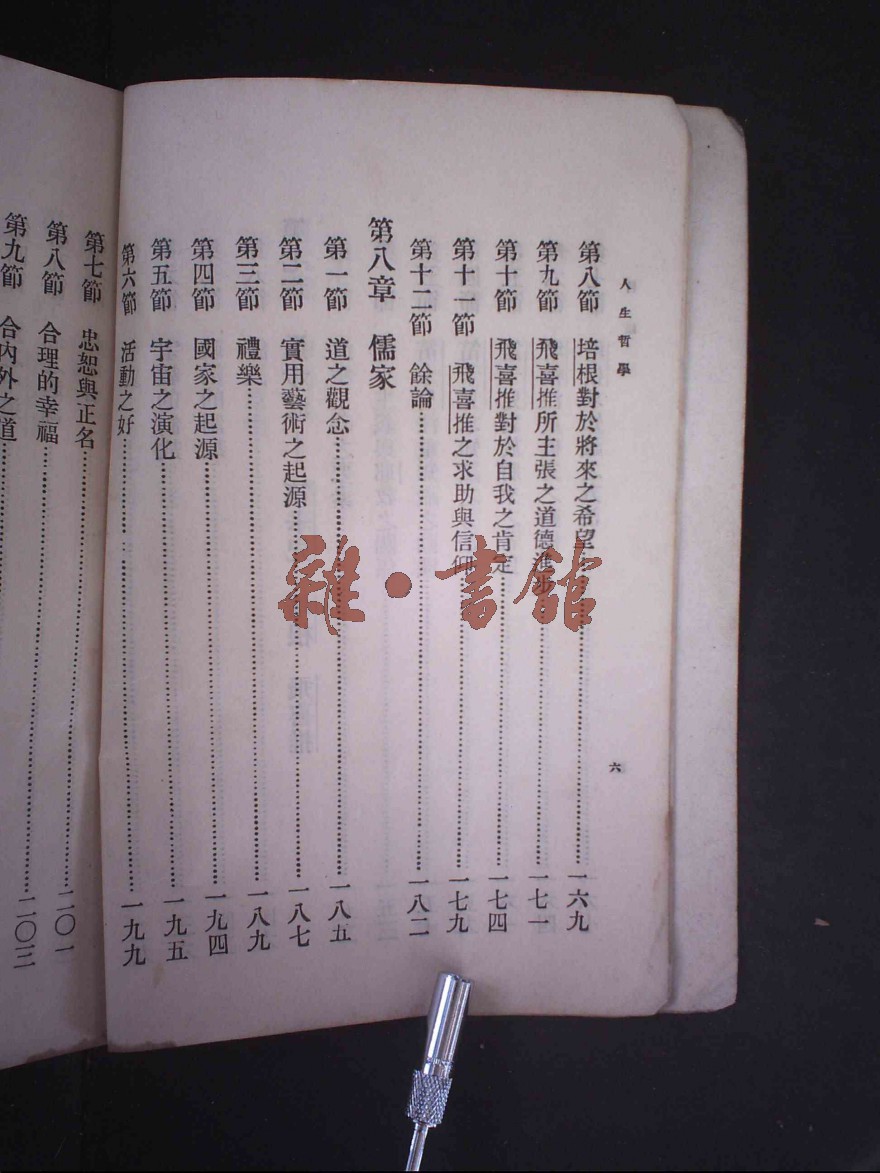 人生哲學
六
第八節 培根對於將來之希望……一六九
第九節 飛喜推所主張之道德進步……一七一
第十節 飛喜推對於自我之肯定……一七四
第十一節 飛喜推之求助與信仰……一七九
第十二節 餘論……一八二
第八章 儒家
第一節 道之觀念……一八五
第二節 實用藝術之起源……一八七
第三節 禮樂……一八九
第四節 國家之起源……一九四
第五節 宇宙之演化……一九五
第六節 活動之好……一九九
第七節 忠恕與正名
第八節 合理的幸福……二〇一
第九節 合內外之道……二〇三
雜·書館